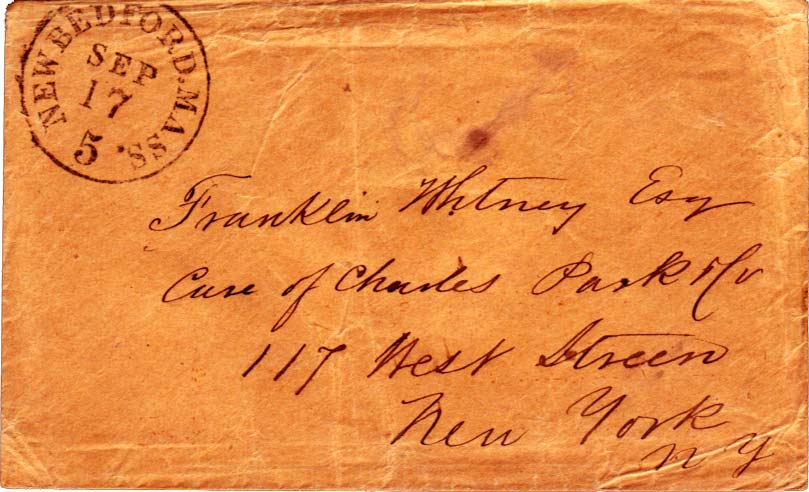 NEW BEDFORD. MASS.
SEP
17
5
Franklin Whitney Esq
Care of Charles Park & Co
117 West Street
New York
N Y